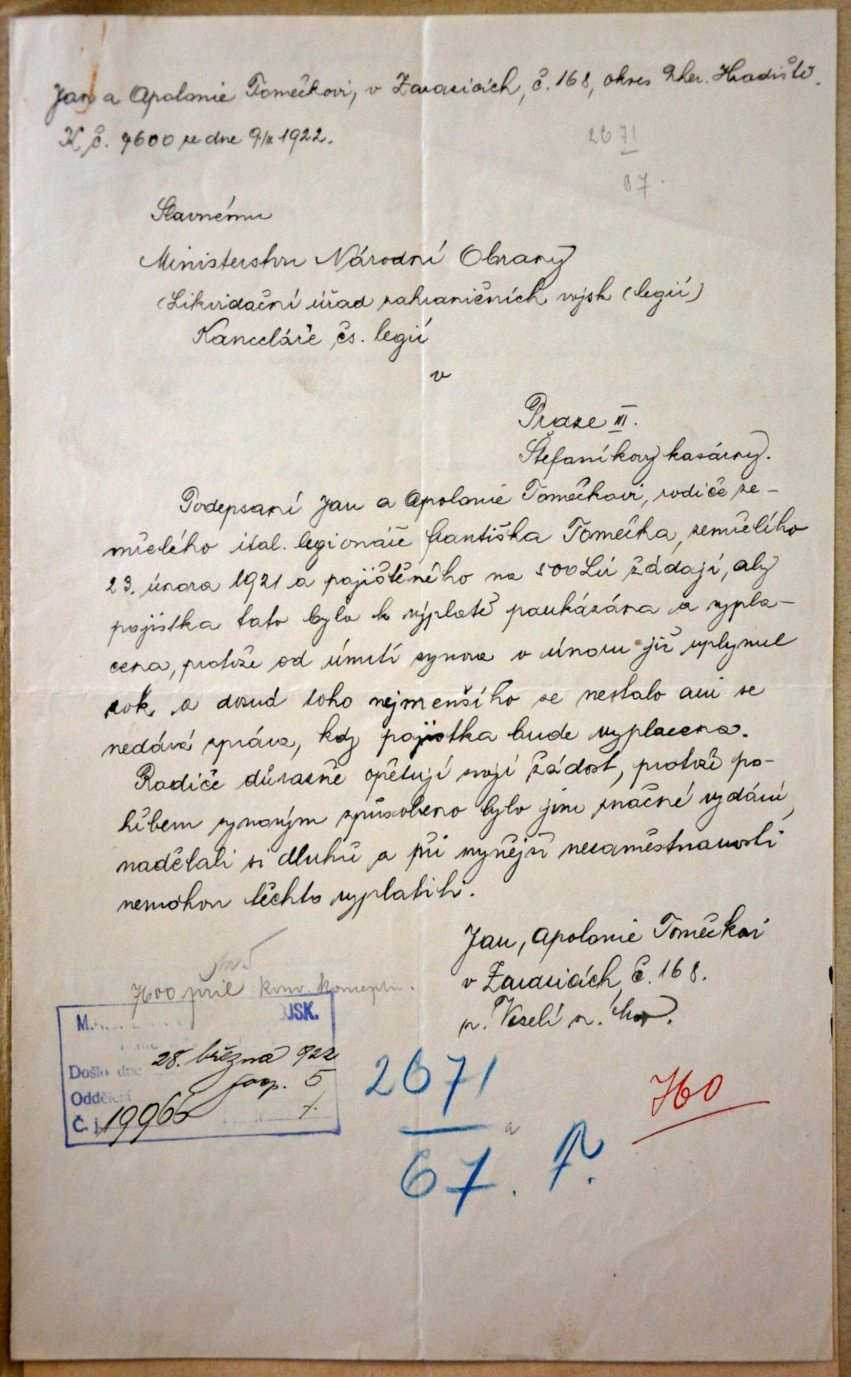 Jan a Apolonie Tomečkovi, v Žarazicích, č. 168, okres Uher. Hradiště.
K č. 7600 ze dne 9/II 1922.
2671
67.
Slavnému
Ministerstvu Národní Obrany
(Likvidační úřad zahraničních vojsk (legií)
Kanceláře čs. legií
v
Praze III.
Štefaníkovy kasárny.
Podepsaní Jan a Apolonie Tomečkovi, rodiče ze-
mřelého ital. legionáře Františka Tomečka, zemřelého
23. února 1921 a pojištěného na 500 Lir žádají, aby
pojistka tato byla k výplatě poukázána a vypla-
cena, protože od úmrtí synova v únoru již uplynul
rok a dosud toho nejmenšího se nestalo ani se
nedává zpráva, kdy pojistka bude vyplacena.
Rodiče důrazně opětují svojí žádost, protože po-
hřbem synovým způsobeno bylo jim značné vydání,
nadělali si dluhů a při nynější nezaměstnanosti
nemohou těchto vyplatiti.
Jan, Apolonie Tomečkovi
v Žarazicích, č. 168.
p. Veselí n. Mor.
7600 příl
M. JSK.
28. března 922
Došlo dne
5
Oddělení
Č. j. 19966
7.
2671
67.
760